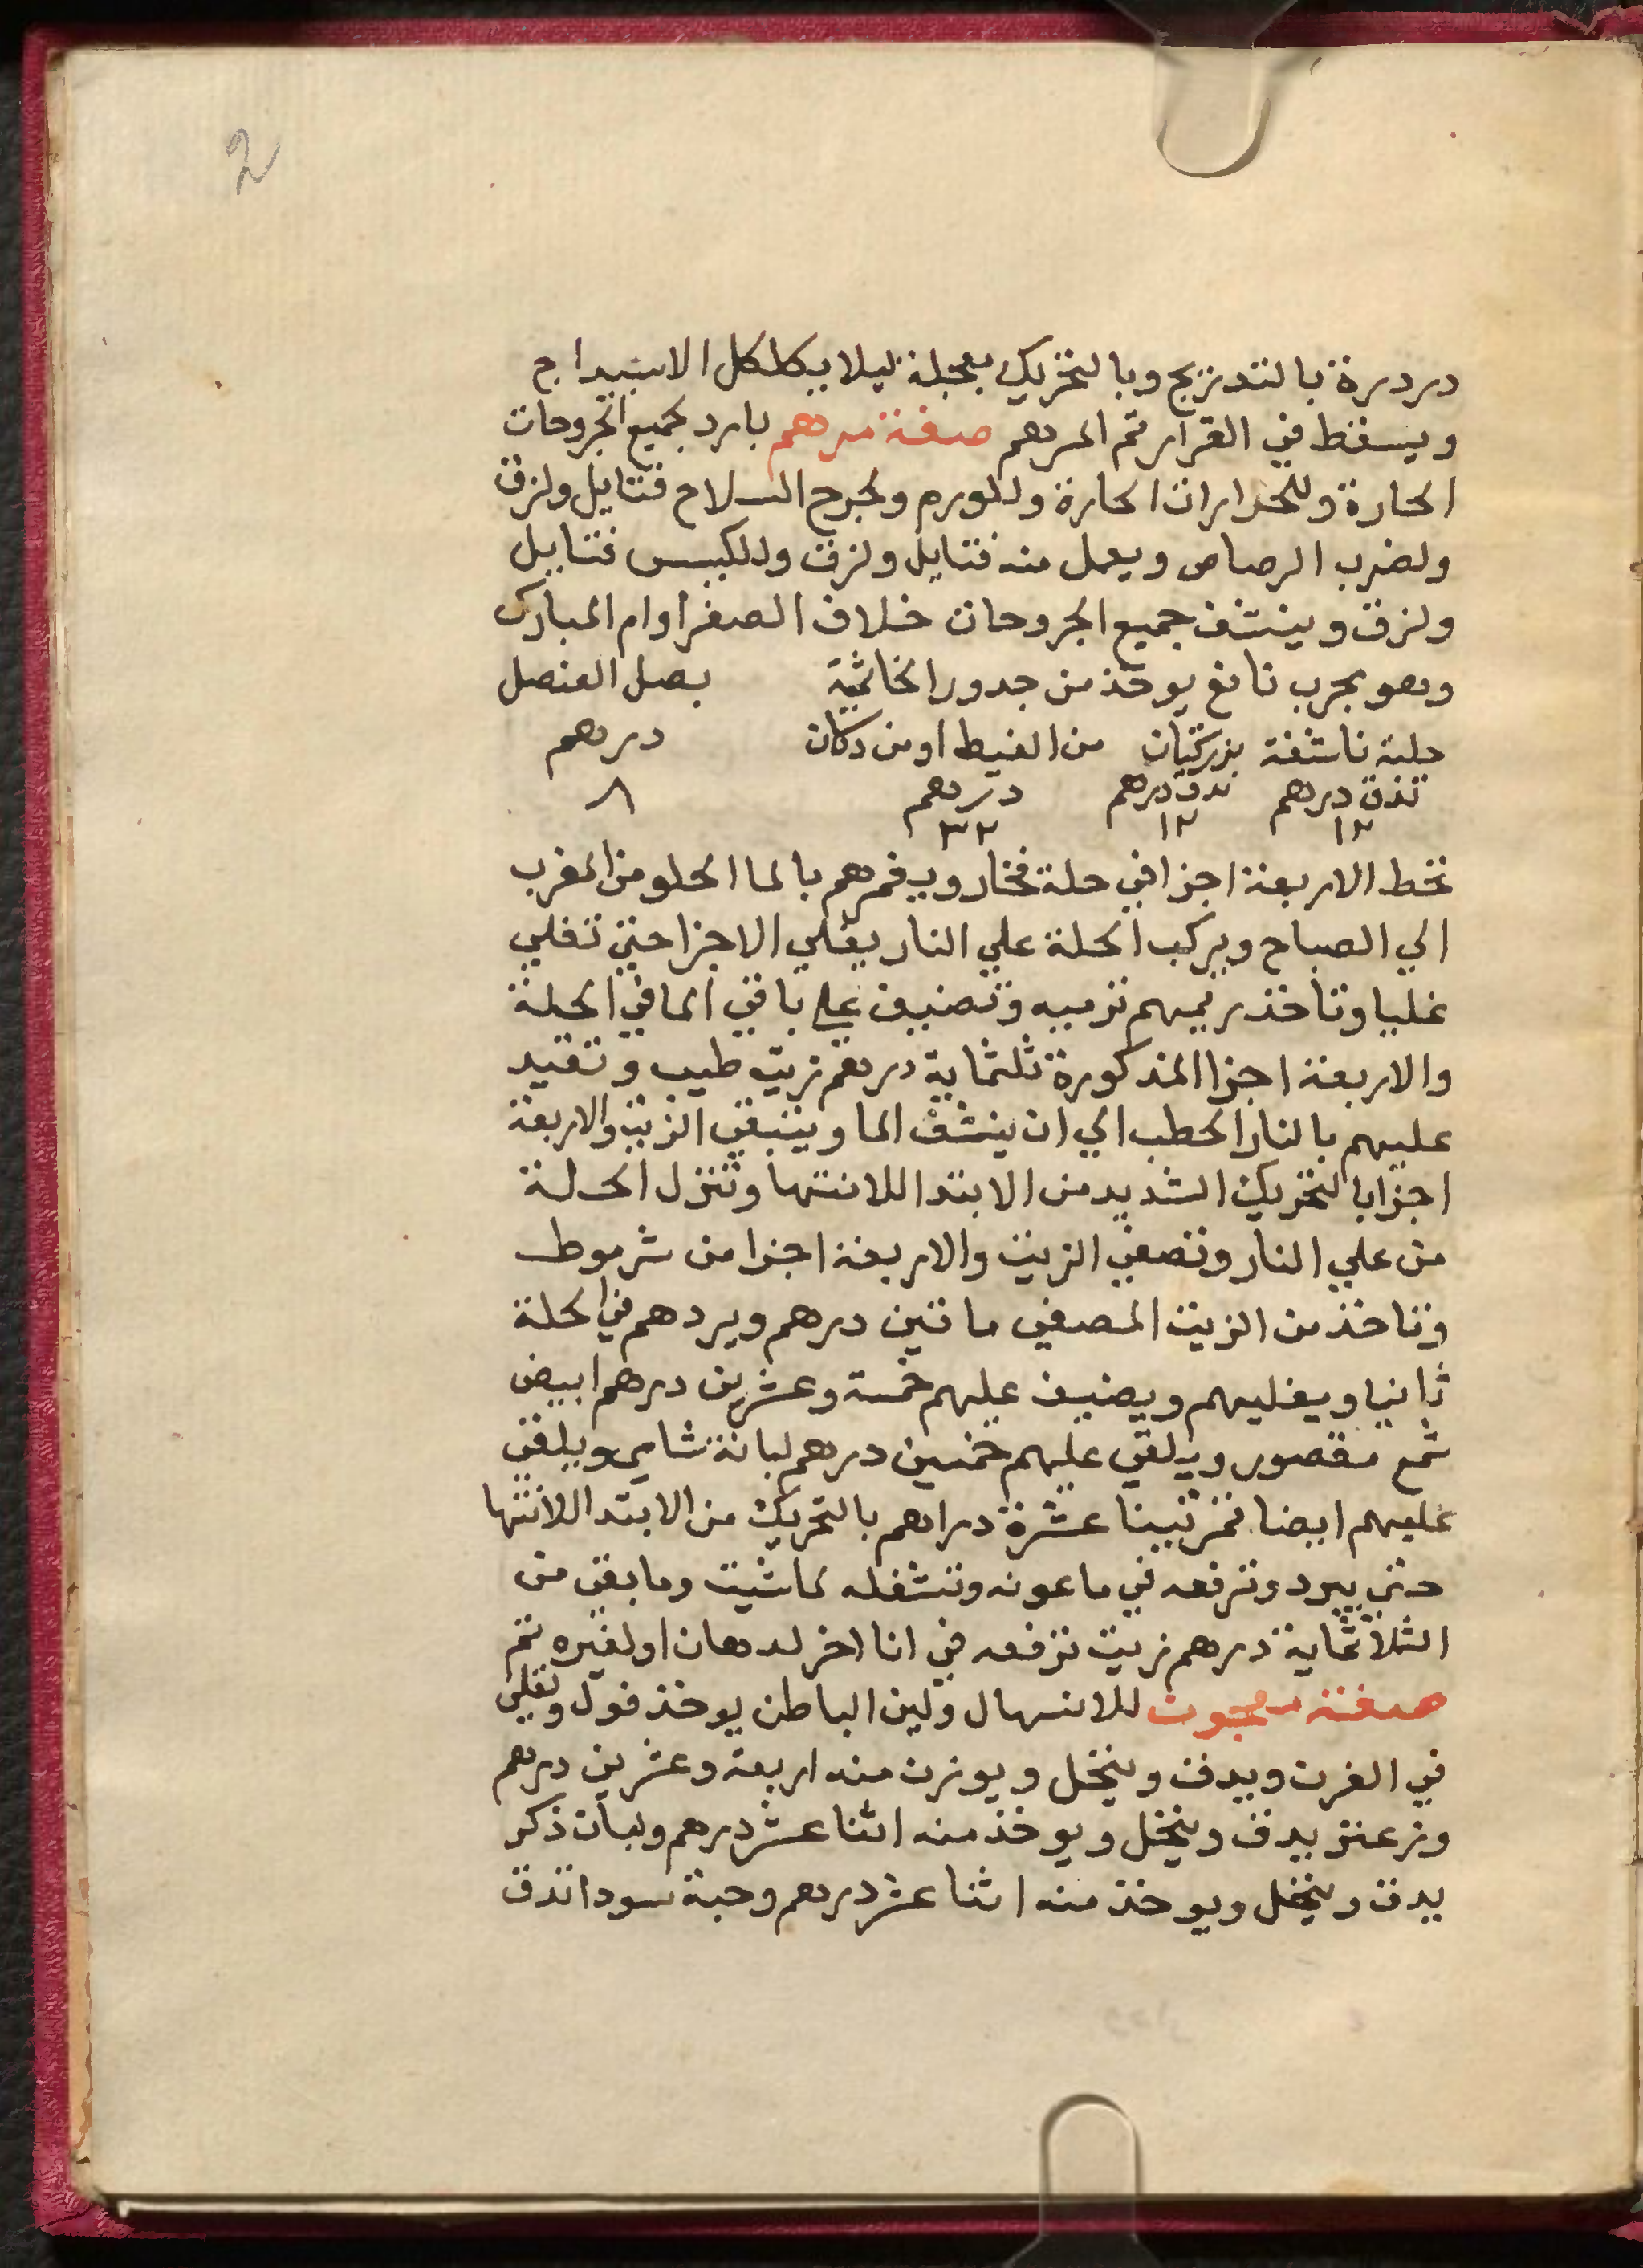 2
دردرة بالتدريج وبالتحريك بعجلة ليلا يكلكل الاسبيداج
ويسقط في القرار تم المرهم صفة مرهم بارد لجميع الجروحات
الحارة وللحرارات الحارة وللورم ولجرح السلاح فتايل ولزق
ولضرب الرصاص ويعمل منه فتايل ولزق وللكبس فتايل
ولزق وينشف جميع الجروحات خلاف الصفرا وام المبارك
وهو مجرب نافع يوخذ من جدور الخاتمية بصل العنصل
حلبة ناشفة بزركتان من الغيط او من دكان درهم
تدق درهم تدق درهم درهم ٨
١٢ ١٢ ٣٢
تحط الاربعة اجزا في حلة فخار ويغمرهم بالما الحلو من المغرب
الي الصباح ويركب الحلة علي النار يغلي الاجزا حتي تغلي
غليا وتاخذ ريميهم ترميه وتضيف علي باقي الما في الحلة
والاربعة اجزا المذكورة ثلثماية درهم زيت طيب وتقيد
عليهم بالنار الحطب الي ان ينشف الما ويتبقي الزيت والاربعة
اجزا بالتحريك الشديد من الابتدا للانتها وتنزل الحلة
من علي النار وتصفي الزيت والاربعة اجزا من شرموط
وتاخذ من الزيت المصفي ماتين درهم ويردهم في الحلة
ثانيا ويغليهم ويضيف عليهم خمسة وعشرين درهم ابيض
شمع مقصور ويلقي عليهم خمسين درهم لبانة شامي ويلقي
عليهم ايضا تمرنتينا عشرة دراهم بالتحريك من الابتدا للانتها
حتي يبرد وترفعه في ماعونه وتشغله لما شيت وما بقي من
الثلاثماية درهم زيت ترفعه في انا اخر لدهان او لغيره تم
صفة معجون للانسهال ولين الباطن يوخذ فول وتقلي
في الفرن ويدق وينخل ويوزن منه اربعة وعشرين درهم
وزعتر يدق وينخل ويوخذ منه اثنا عشر درهم ولبان ذكر
يدق وينخل ويوخذ منه اثنا عشر درهم وحبة سودا تدق